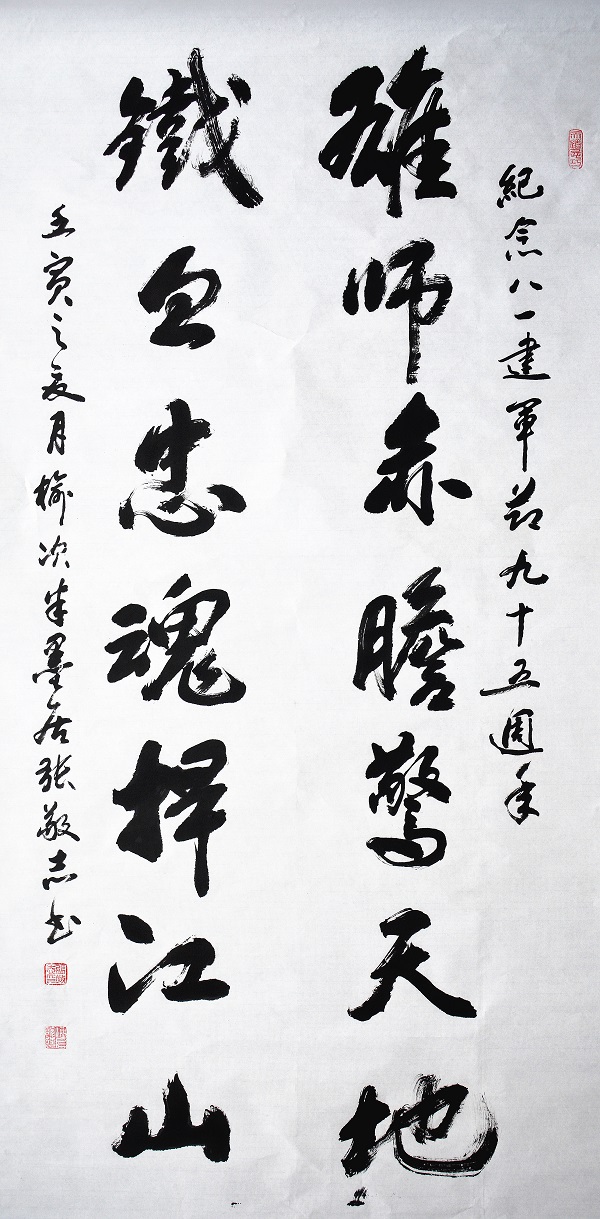 紀念八一建軍節九十五週年
雄师赤膽驚天地
鐵血忠魂捍江山
壬寅之夏月榆次半墨居張敬志书